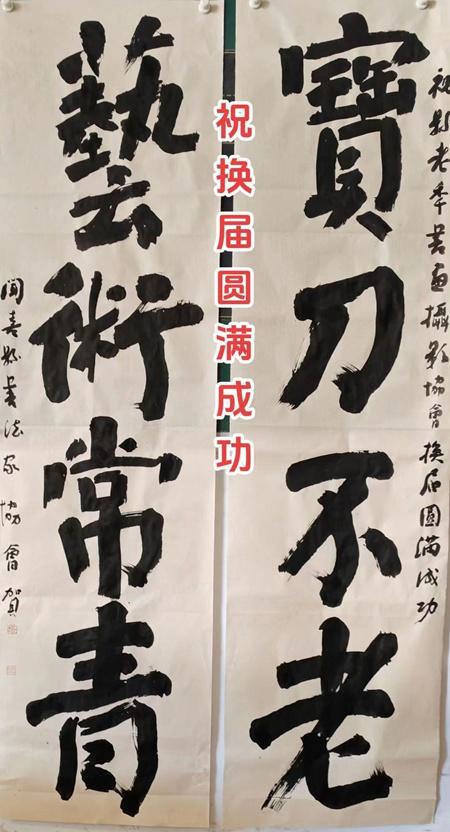 祝縣老年書画攝影協會换届圓滿成功
寶刀不老
祝换届圆满成功
藝術常青
聞喜縣書法家協會賀